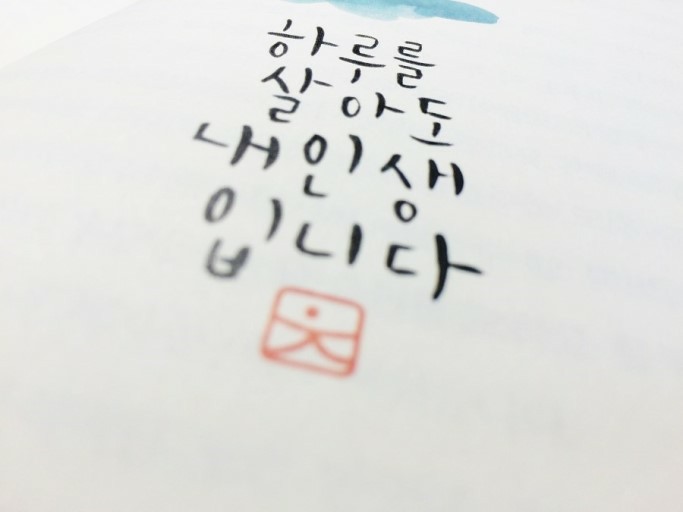 하루를
살아도
내 인생
입니다